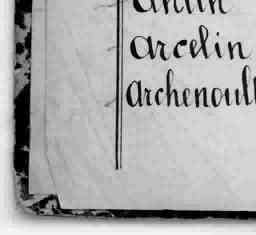 arcelin
archenoul